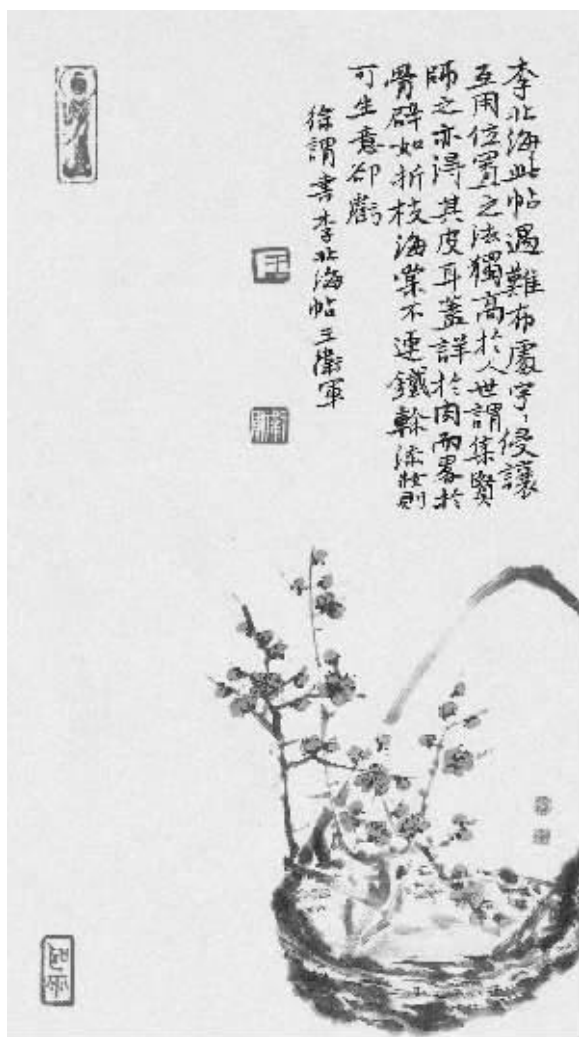 李北海此帖遇難布處字〻侵讓
互用位置之法獨高於人世謂集賢
師之亦得其皮耳蓋詳於肉而畧於
骨辟如折枝海棠不連鐵幹添妝則
可生意却虧
徐謂書李北海帖王衛軍
王